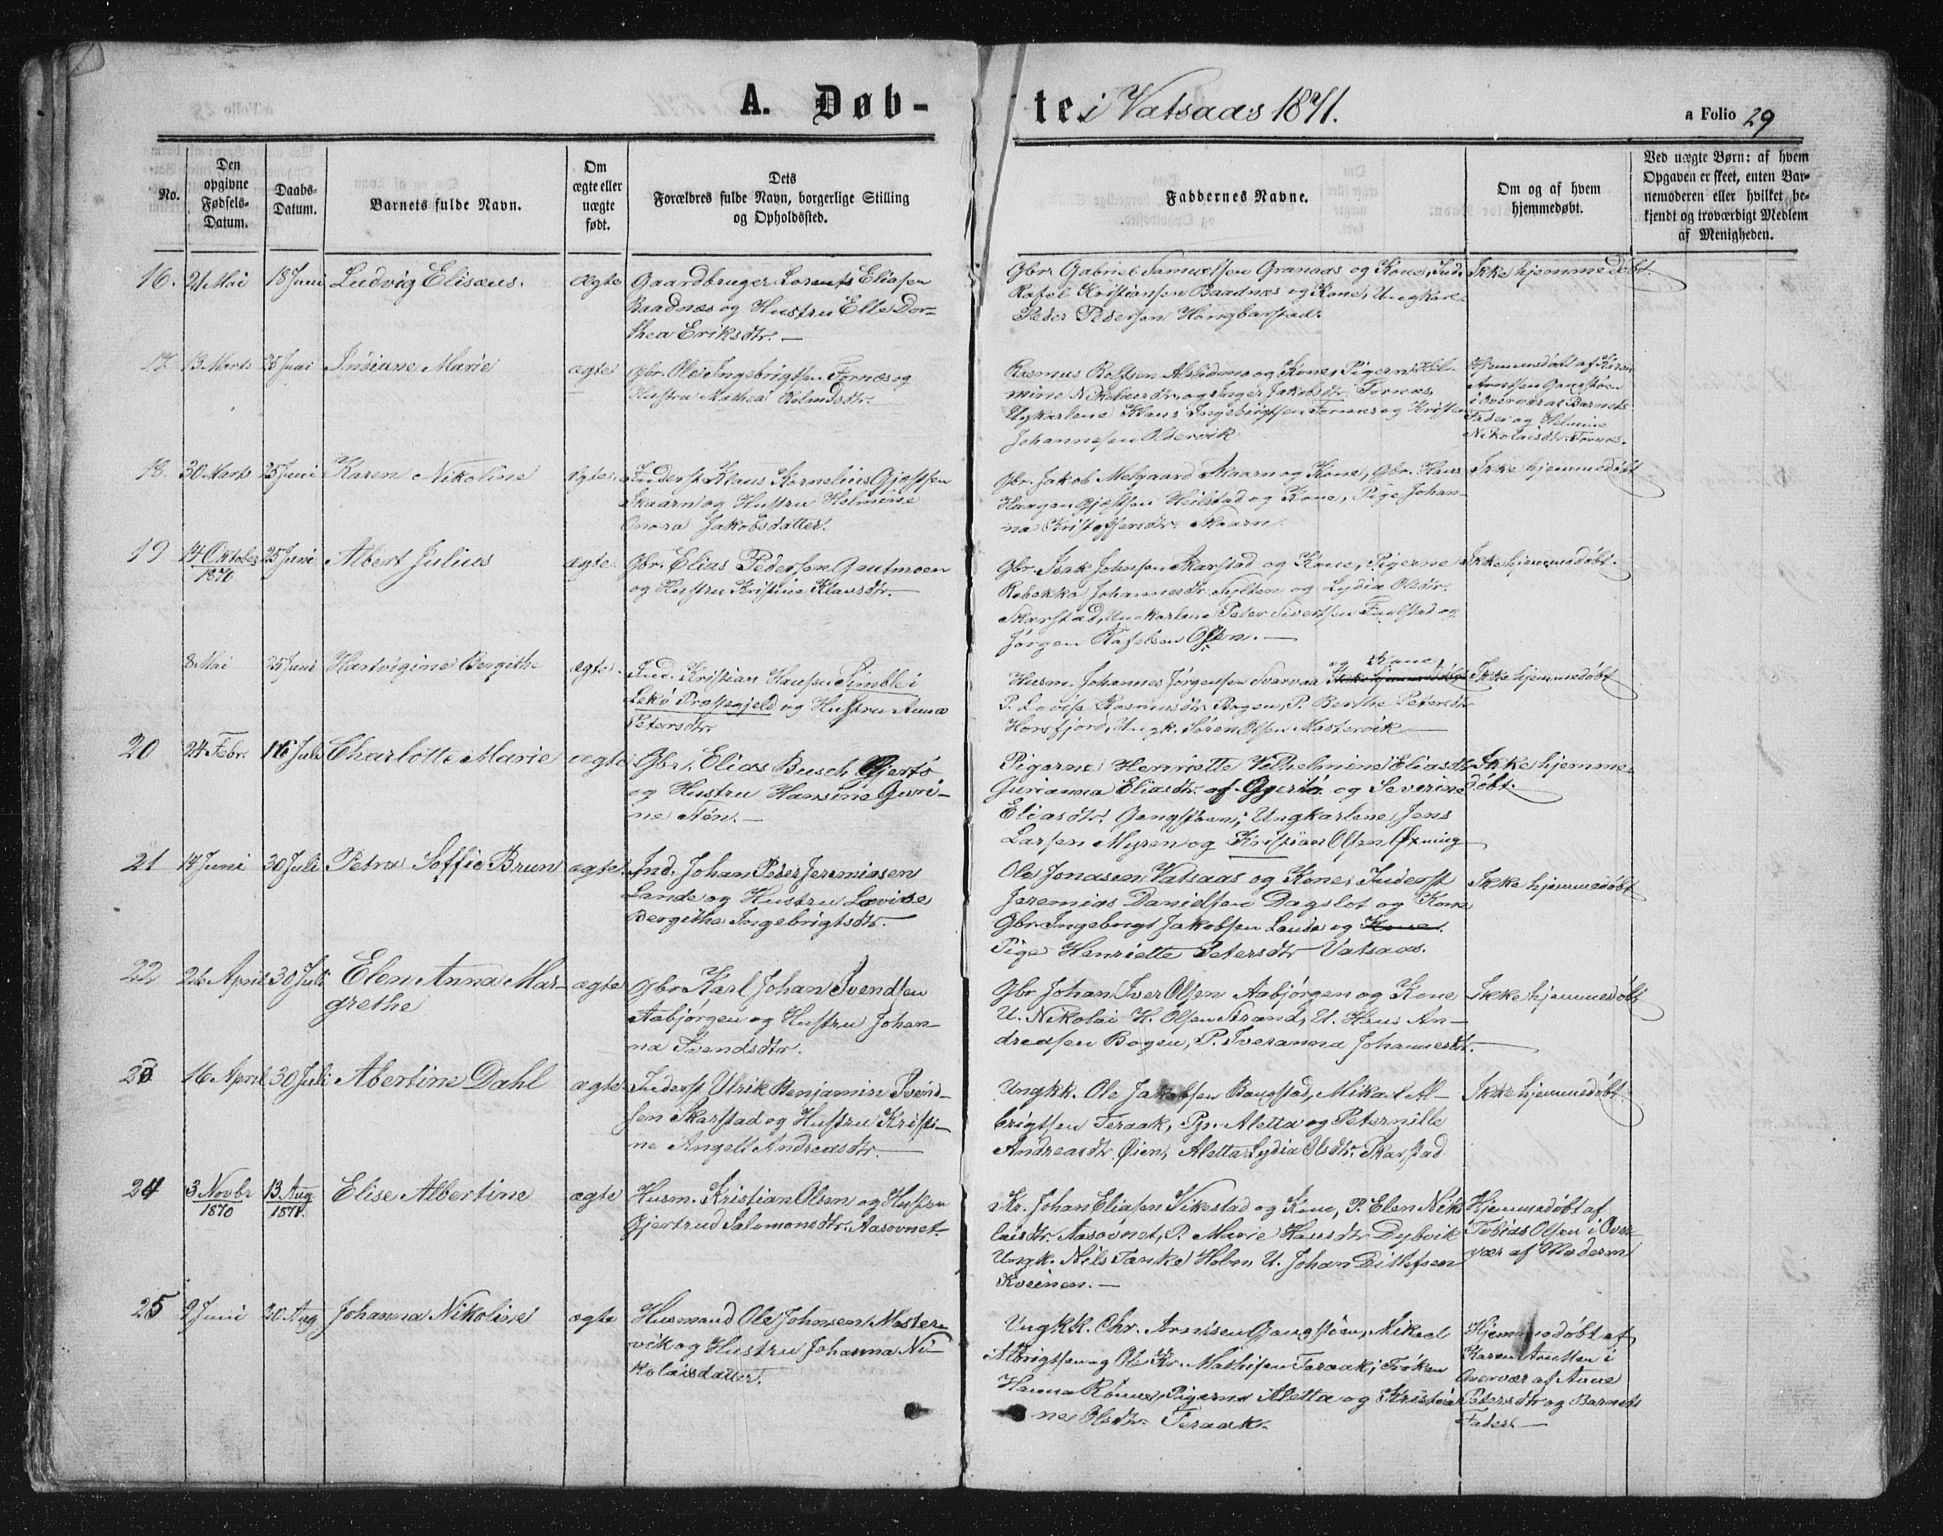 A. Døb-
te i Vatsaas 1871.
a Folio 29
No.
Den opgivne Fødsels-Datum.
Daabs-Datum.
Barnets fulde Navn.
Om ægte eller uægte født.
Dets Forældres fulde Navn, borgerlige Stilling og Opholdssted.
Faddernes Navne.
Om og af hvem hjemmedøbt.
Ved uægte Børn: af hvem Opgaven er skeet, enten Barnemoderen eller hvilket bekjendt og troværdigt Medlem af Menigheden.
16. 21 Mai 18 Juni Ludvig Elisæus. Ægte Gaardbruger Lorents Eliasen
Baadnæs og Hustru Elle Dor-
thea Eriksdtr. —
Gbr. Gabriel Samuelsen Granaas og Kone, Ind.
Rafel Kristiansen Baadnæs og Kone, Ungkarl
Peder Pedersen Hongbarstad.
Ikke hjemmedøbt.
17. 13 Marts 25 Juni Josiane Marie ægte Gbr. Ole Ingebrigtsen Tornæs og
Hustru Mathea
Rasmus Rolfsen og Kone, Pigerne Hel-
mine Nikolaisdtr. og Inger Jakobsdtr Tornæs,
Ungkarlene Klaus Ingebrigtsen Tornæs og Kristen
Johannesen Oldervik
Hjemmedøbt af
Arntsen Gangstøen
i Overvær af Barnets
Fader og Helmine
Nikolaisdtr. Tornæs.
18. 30 Marts 25 Juni Karen Nikoline Ægte. Inderst Klaus Kornelius Gjestsen
Skaarn og Hustru Helmine
Onora Jakobsdatter.
Gbr. Jakob Melgaard Skaarn og Kone, Gbr. Hans
Haagen Gjestsen Heilstad og Kone, Pige Johan-
na Kristoffersdtr. Skaarn.
Ikke hjemmedøbt
19 14 Oktober 1870 25 Juni Albert Julius ægte. Gbr. Elias Pedersen Gautmoen
og Hustru Kristine Klausdtr. —
Gbr. Isak Johnsen Skarstad og Kone, Pigerne
Rebekka Johannesdtr. Sylten og Lydia Olsdtr.
Skarstad, Ungkarlene Peder Sivertsen Fuglstad og
Jørgen Rafelsen Olsen. —
Ikke hjemmedøbt.
8 Mai 25 Juni Hartvigine Bergithe ægte. Ind. Kristian Hansen Simble i
Lekø Præstegjeld og Hustru Anna
Petersdtr.
Husm. Johannes Jørgensen Svarvaa og Kone,
P. Lovise Rasmusdtr. Bogen, P. Berthe Petersdtr
Horsfjord, Ungk. Søren Olsen Mastervik —
Ikke hjemmedøbt
20 24 Febr. 16 Juli Charlotte Marie ægte Gbr. Elias Busch Gjerø
og Hustru Hansine Guri-
ne Føn. —
Pigerne Henriette Vilhelmine Eliasdtr
Jurianna Eliasdtr. af Gjerø og Severine
Eliasdtr. Gangstøen, Ungkarlene Jens
Larsen Myren og Kristian Olsen Øxning
Ikke hjemme-
døbt.
21 17 Juni 30 Juli Petra Soffie Brun ægte. Ind. Johan Peder Jeremiasen
Lande og Hustru Lovise
Bergithe Ingebrigtsdtr. —
Ole Jonasen Vatsaas og Kone, Inderst
Jeremias Danielsen Dagslot og Kone
Gbr. Ingebrigt Jakobsen Lande og Kone,
Pige Henriette Petersdtr Vatsaas.
Ikke hjemmedøbt
22 26 April 30 Juli Elen Anna Mar-
grethe ægte Gbr Karl Johan Svendsen
Aabjørgen og Hustru Johan-
na Svendsdtr.
Gbr Johan Iver Olsen Aabjørgen og Kone
U. Nikolai H. Olsen Strand, U. Hans An-
dreasen Bogen, P. Iveranna Johannesdtr. —
Ikke hjemmedøbt
23 16 April 30 Juli Abertine Dahl ægte Inderst Ulrik Benjamin Svend-
sen Skarstad og Hustru Kristi-
ne Angell Andreasdtr. —
Ungkk. Ole Jakobsen Bangstad, Mikal Al-
brigtsen Teraak, Pgr. Aletta og Peternille
Andreasdtr. Øien, Aletta Lydia Olsdtr. Skarstad
Ikke hjemmedøbt.
24 3 Novbr 1870 13 Aug 1871. Elise Albertine ægte Husm. Kristian Olsen og Hustru
Gjertrud Salomonsdtr. Aasovnet.
Kr. Johan Eliasen Vikestad og Kone, P. Elen Niko-
laisdtr. Aasovnet, P. Marie Hansdtr Dybvik
Ungk. Nils Tanke Holm, U. Johan Ditlefsen
Kveinen. —
Hjemmedøbt af
Tobias Olsen i Over-
vær af Moderen
25 9 Juni 20 Aug Johanna Nikoline ægte Husmand Ole Johnsen Master-
vik og Hustru Johanna Ni-
kolaisdatter.
Ungkk. Chr. Arntsen Gangstøen, Mikael
Albrigtsen og Ole Kr. Mathisen Teraak, Frøken
Hanna Rønne, Pigerne Aletta og Kristian-
ne Olsdtr. Teraak.
Hjemmedøbt af
Karen Arntsen i
Overvær af Anne
Petersdtr og Barnets
Fader —